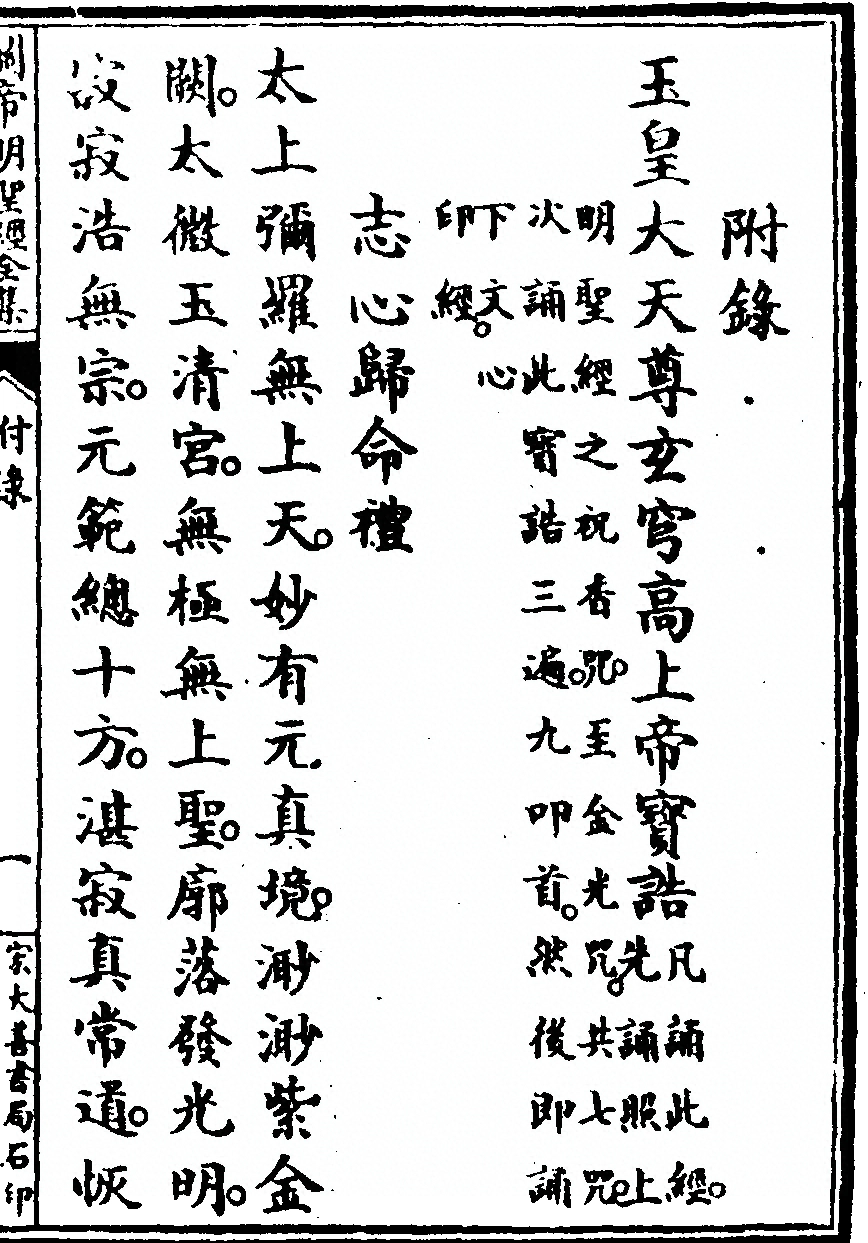 附錄
玉皇大天尊玄穹高上帝寶誥
凡誦此經。
先誦照上
明聖經之祝香咒。至金光咒。共七咒。
次誦此寶誥三遍。九叩首。然後即誦
下文心
印經。
志心歸命禮
太上彌羅無上天。妙有元真境。渺渺紫金
闕。太微玉清宮。無極無上聖。廓落發光明。
寂寂浩無宗。元範總十方。湛寂真常道。恢
帝明聖經全集
付錄
一
宗大善書局石印